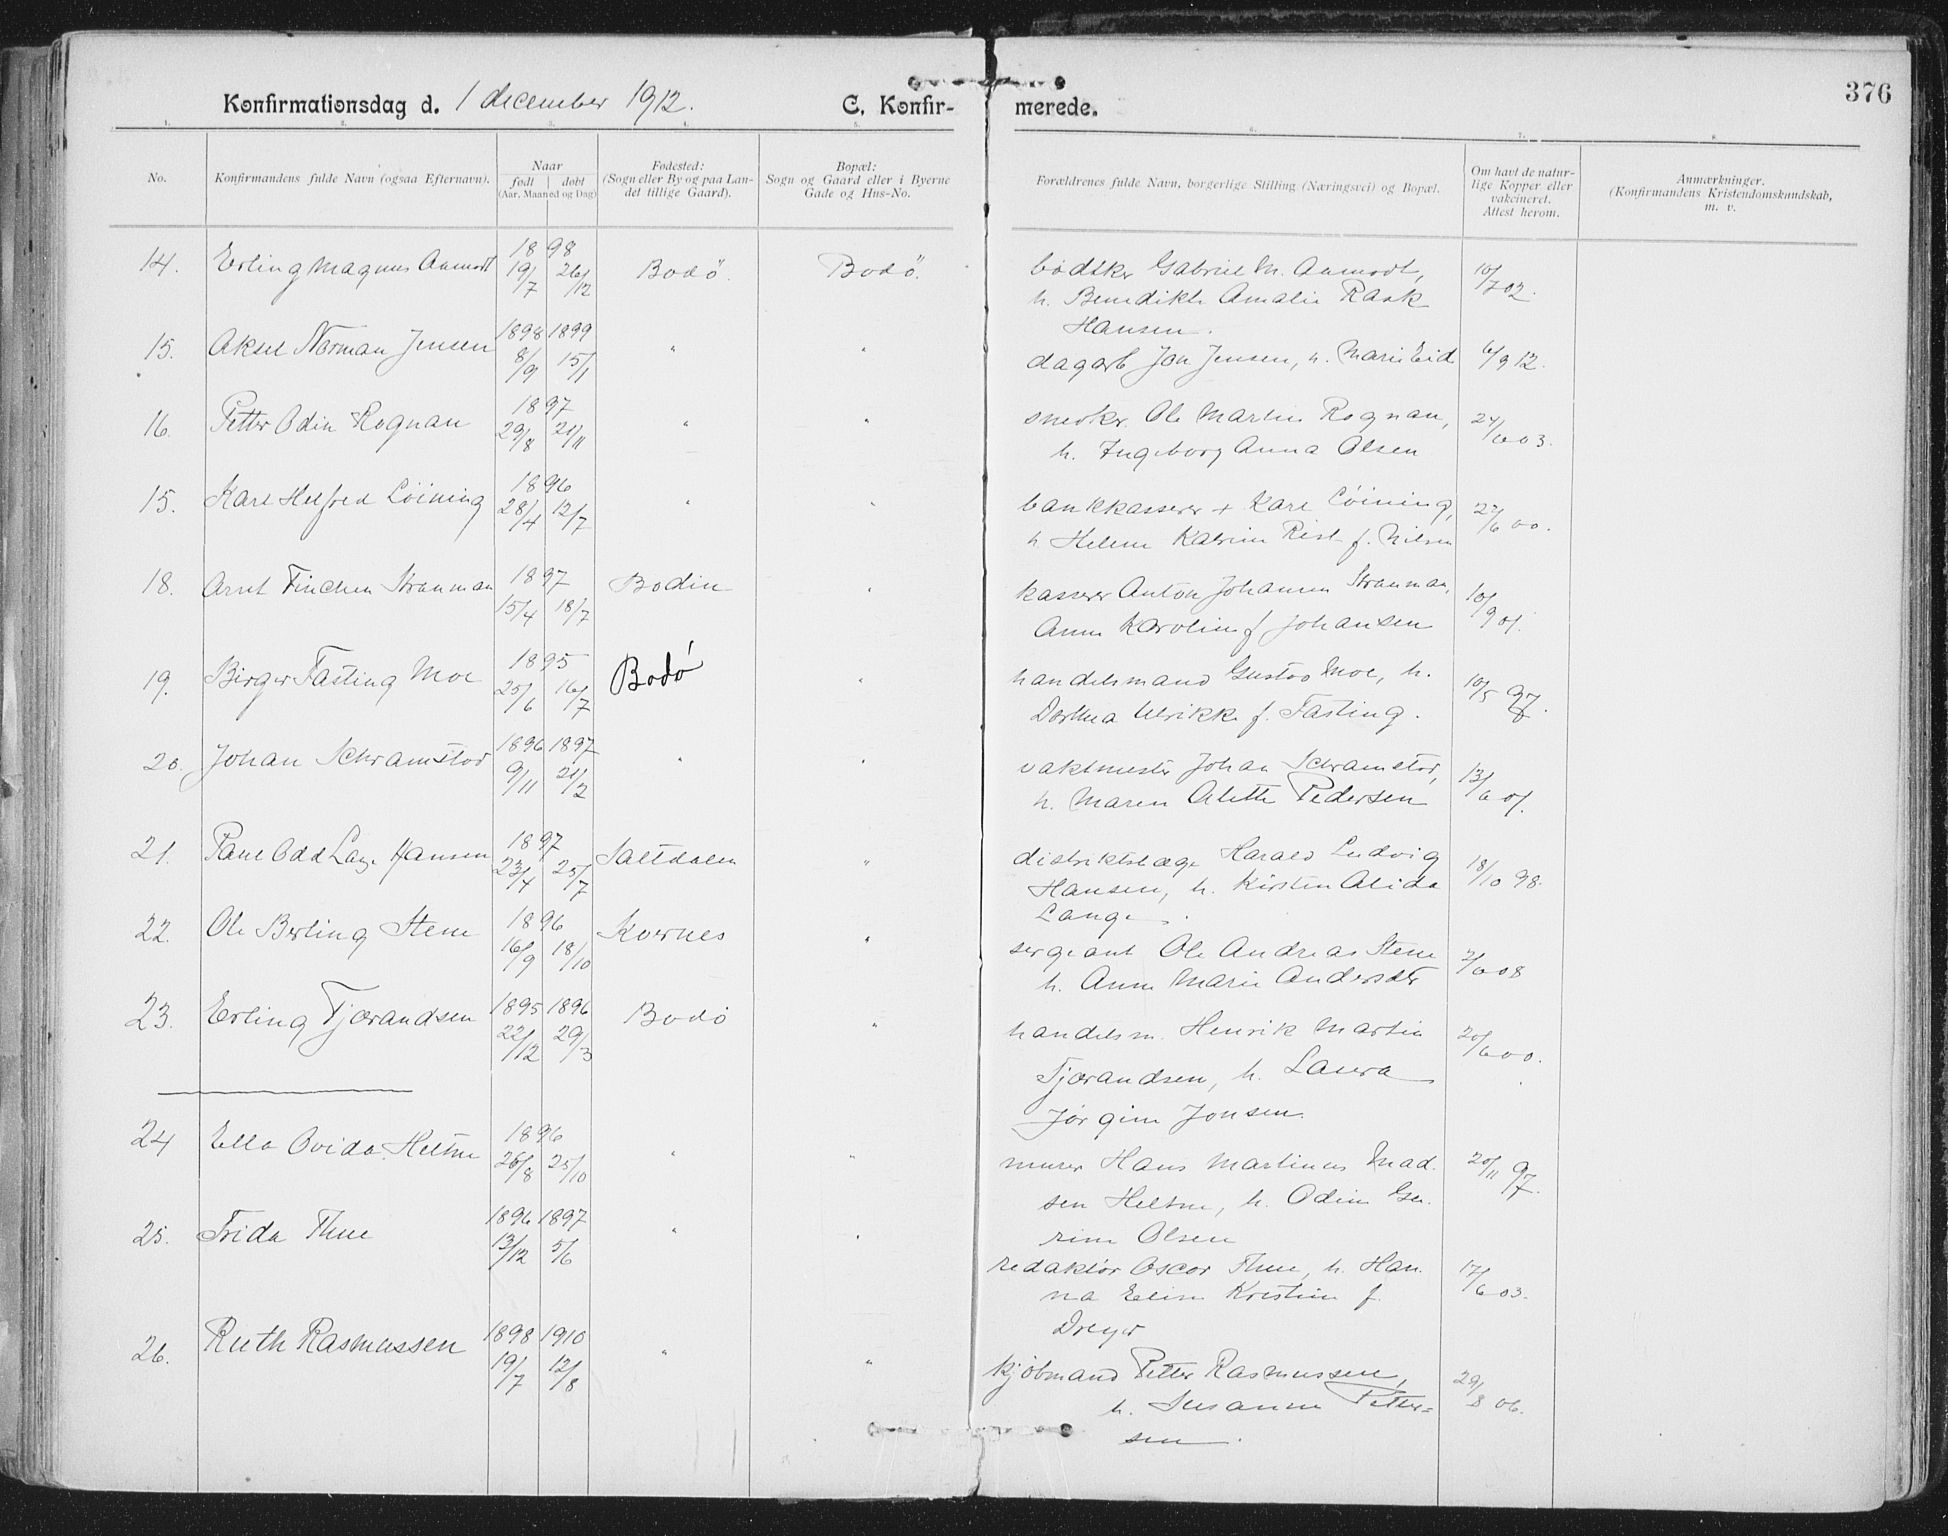 376
Konfirmationsdag d. 1 december 1912. C. Konfir- merede.
1. 2. 3. 4. 5. 6. 7. 8.
No.
Konfirmandens fulde Navn (ogsaa Efternavn).
Naar
født døbt
(Aar, Maaned og Dag)
Fødested:
(Sogn eller By og paa Lan-
det tillige Gaard).
Bopæl:
Sogn og Gaard eller i Byerne
Gade og Hus-No.
Forældrenes fulde Navn, borgerlige Stilling (Næringsvei) og Bopæl.
Om havt de natur-
lige Kopper eller
vakcineret.
Attest herom.
Anmærkninger.
(Konfirmandens Kristendomskundskab,
m. v.
14. Erling Magnus Aamodt 1898 19/7 26/12 Bodø. Bodø. bødker Gabriel M. Aamodt, 10/7 02.
h. Benedikte Amalie Rask
Hansen.
15. Aksel Norman Jensen 1898 8/9 1899 15/1 " " dagarb Jon Jensen, h. Marie Eid 6/9 12.
16. Petter Odin Rognan 1897 29/8 21/11 " " snedker Ole Martin Rognan, 24/6 03.
h. Ingeborg Anna Olsen
15. Karl Helfred Löining 1896 28/4 12/7 " " bankkasserer + Karl Löining, 27/6 00.
h Helene Katrine Rist f. Nilsen
18. Arnt Finchen Strauman 1897 15/4 18/7 Bodin " kasserer Anton Johannes Strauman, 10/9 01.
Anne Karoline f Johansen
19. Birger Fasting Moe 1895 25/6 16/7 Bodó " handelsmand Gustav Moe, h. 10/5 97.
Dorthea Ulrikke f. Fasting.
20. Johan Schramstad 1896 9/11 1897 21/2 " " vaktmester Johan Schramstad, 13/6 01.
h. Maren Alette Pedersen
21. Paul Odd Lange Hansen 1897 23/4 25/7 Saltdalen " distriktslæge Harald Ludvig 18/10 98.
Hansen, h. Kirsten Alida
Lange.
22. Ole Berling Stene 1896 16/9 18/10 Kvernes " sergeant Ole Andreas Stene 2/6 08
h. Anne Marie Andersdtr
23. Erling Tjærandsen 1895 22/12 1896 29/3 Bodó " handelsm. Henrik Martin 20/6 00.
Tjærandsen, h. Laura
Jørgine Jonsen.
24 Ella Ovida Heltne 1896 26/8 25/10 " " murer Hans Martinus Mad- 20/11 97.
sen Heltne, h. Odine Ge-
rine Olsen
25. Frida Thue 1896 13/12 1897 5/6 " " redaktør Oscar Thue, h. Han- 17/6 03.
na Elise Kristine f.
Dreyer
26. Ruth Rasmussen 1898 19/7 1910 12/8 " " kjøbmand Petter Rasmussen, 29/8 06.
h. Susanne Petter=
sen.